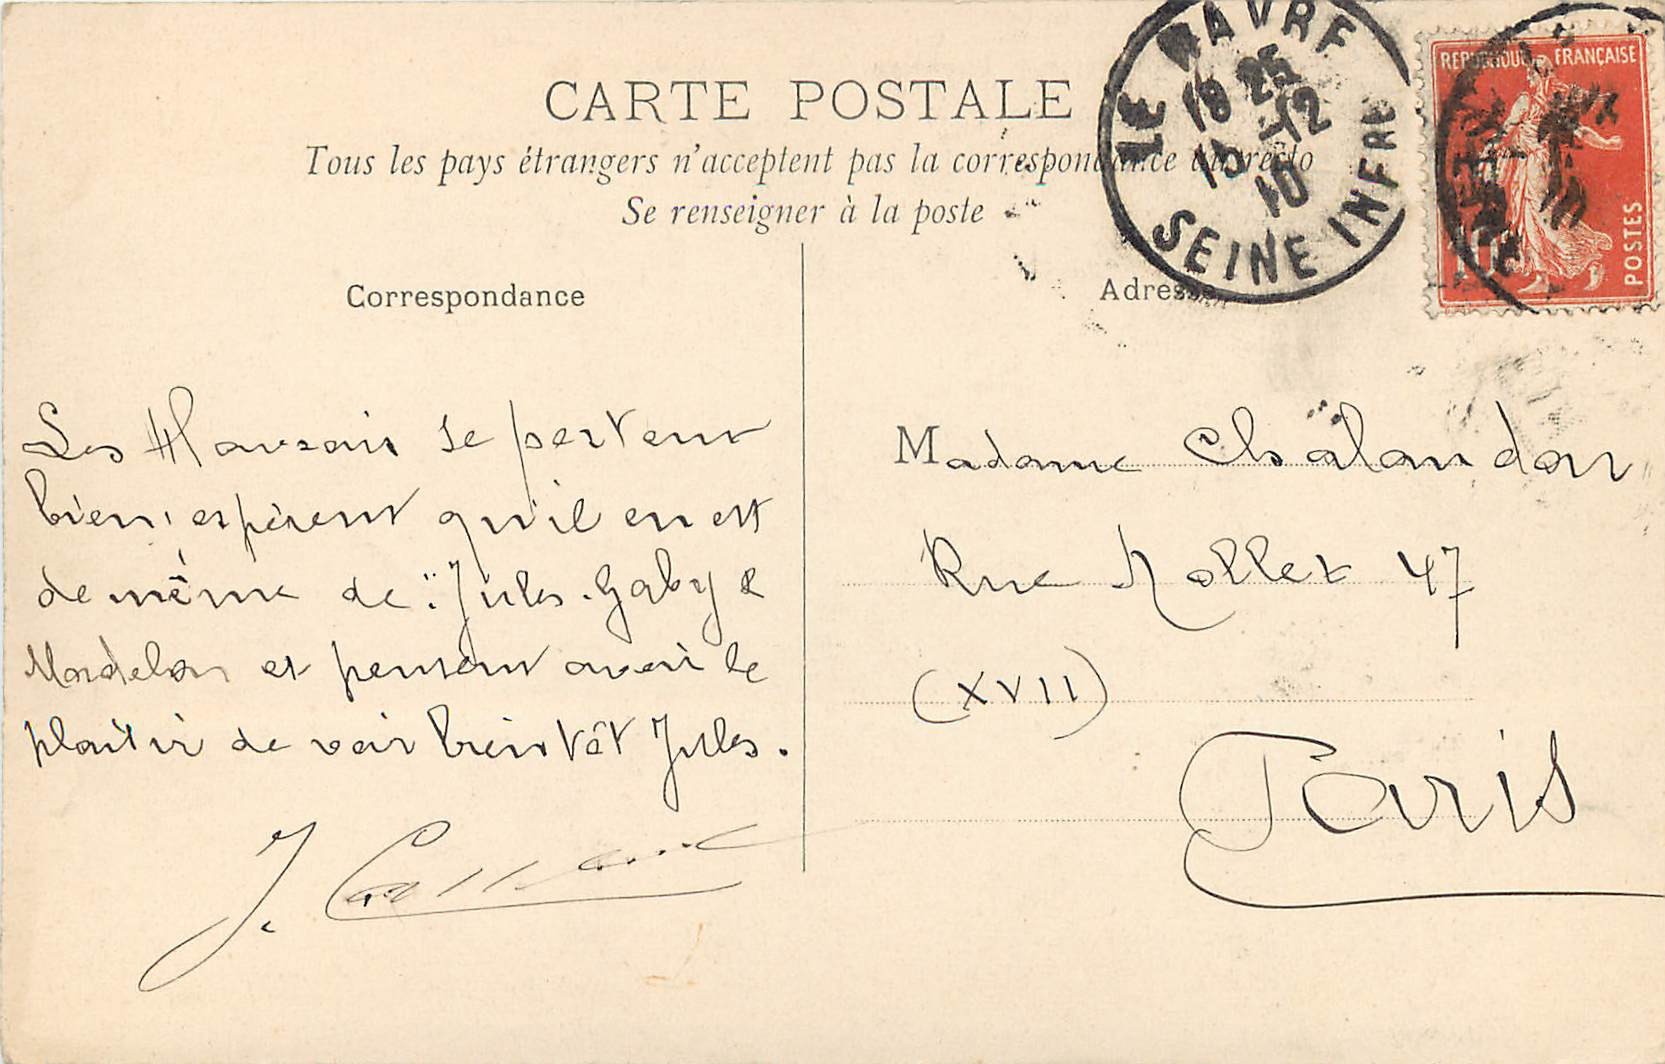 CARTE POSTALE
Tous les pays étrangers n'acceptent pas la correspondance au recto
Se renseigner à la poste
LE HAVRE
18 25
13 -12
10
SEINE INFRE
REPUBLIQUE FRANÇAISE
10
POSTES
Correspondance
Adresse
Les Havrais se portent
bien, espèrent qu'il en est
de même de : Jules. Gaby &
Madelon et pensent avoir le
plaisir de voir bientôt Jules.
J.
Madame Chalandon
Rue Nollet 47
(XVII)
Paris